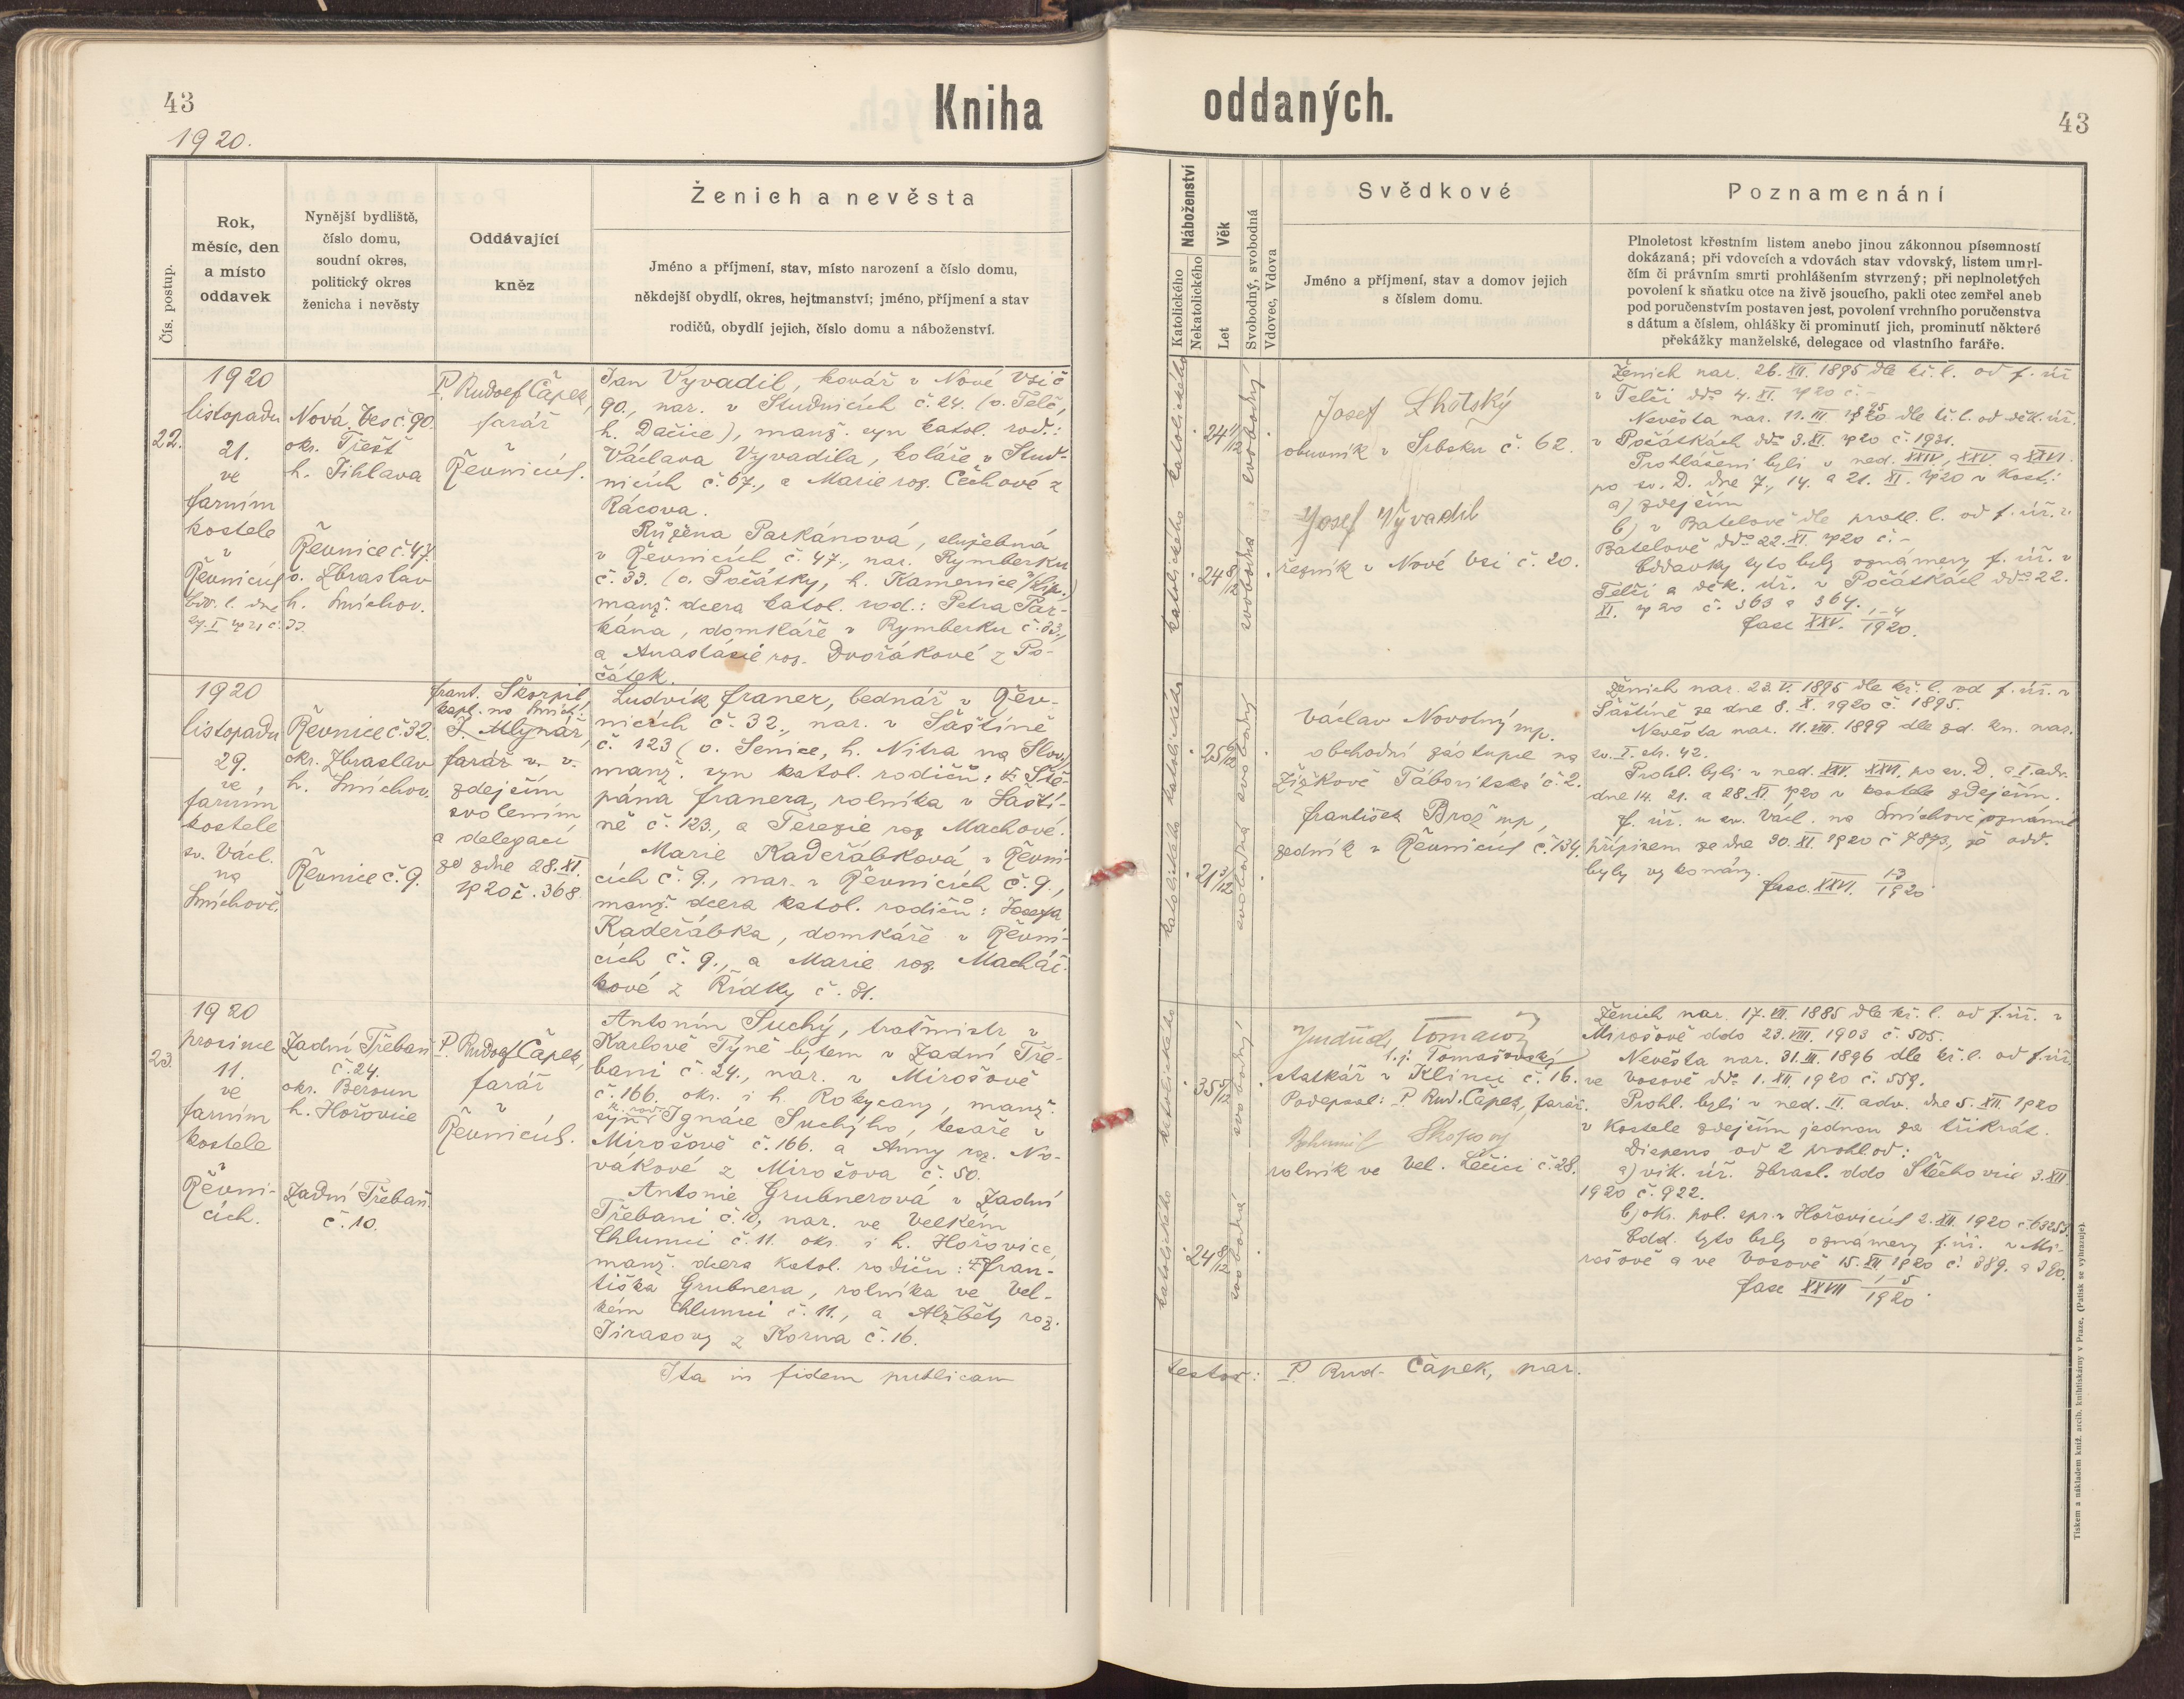 43
1920.
Kniha
oddaných.
43
Čís. postup.
Rok,
měsíc, den
a místo
oddavek
Nynější bydliště,
číslo domu,
soudní okres,
politický okres
ženicha i nevěsty
Oddávající
kněz
Ženich a nevěsta
Jméno a příjmení, stav, místo narození a číslo domu,
někdejší obydlí, okres, hejtmanství; jméno, příjmení a stav
rodičů, obydlí jejich, číslo domu a náboženství.
Náboženství
Katolického
Nekatolického
Věk
Let
Svobodný, svobodná
Vdovec, Vdova
Svědkové
Jméno a příjmení, stav a domov jejich
s číslem domu.
Poznamenání
Plnoletost křestním listem anebo jinou zákonnou písemností
dokázaná; při vdovcích a vdovách stav vdovský, listem umrl-
čím či právním smrti prohlášením stvrzený; při neplnoletých
povolení k sňatku otce na živě jsoucího, pakli otec zemřel aneb
pod poručenstvím postaven jest, povolení vrchního poručenstva
s dátum a číslem, ohlášky či prominutí jich, prominutí některé
překážky manželské, delegace od vlastního faráře.
22.
1920
listopadu
21.
ve
farním
kostele
v
Řevnicích
Nová Ves č. 90.
okr. Třešť
h. Jihlava
Řevnice č. 47.
o. Zbraslav
h. Smíchov.
P. Rudolf Čápek,
farář
v
Řevnicích.
Jan Vyvadil, kovář v Nové Vsi č.
90., nar. v Studnicích č. 24. (o. Telč,
h. Dačice), manž. syn katol. rod.:
Václava Vyvadila, koláře v Stud-
nicích č. 67., a Marie roz. Čechové z
Rácova.
Růžena Parkánová, služebná
v Řevnicích č. 47., nar. Rymberku
č. 33. (o. Počátky, h. Kamenice n/Lip.)
manž. dcera katol. rod.: Petra Par-
kána, domkáře v Rymberku č. 33.,
a Anastásie roz. Dvořákové z Po-
čátek.
katolického
katolického
24
24 8/12
svobodný
svobodná
Josef Lhotský
obuvník v Srbsku č. 62.
Josef Vyvadil
řezník v Nové Vsi č. 20.
Ženich nar. 26. XII. 1895 dle kř. l. od f. úř.
v Telči ddo 4. XI. 1920 č. -
Nevěsta nar. 11. III. 1895 dle kř. l. od děk. úř.
v Počátkách ddo 3. XI. 1920 č. 1931.
Prohlášeni byli v ned. XXIV., XXV. a XXVI.
po sv. D. dne 7., 14. a 21. XI. 1920 v kost.:
a) zdejším
b) v Batelově dle prohl. l. od f. úř. v
Batelově ddo 22. XI. 1920 č. -
Oddavky tyto byly oznámeny f. úř. v
Telči a děk. úř. v Počátkách ddo 22.
XI. 1920 č. 363 a 364.
fasc XXV. 1-4/1920.
1920
listopadu
29.
ve
farním
kostele
sv. Václ.
na
Smíchově.
Řevnice č. 32.
okr. Zbraslav
h. Smíchov.
Řevnice č. 9.
Frant. Škorpil,
kapl. na Smích.
J. Mlynář,
farář v. v.
zdejším
svolením
a delegací
ze dne 28. XI.
1920 č. 368.
Ludvík Franer, bednář v Řev-
nicích č. 32., nar. v Šaštíně
č. 123 (o. Senice, h. Nitra na Slov.)
manž. syn katol. rodičů: † Ště-
pána Franera, rolníka v Šaští-
ně č. 123., a Terezie roz Machové.
Marie Kadeřábková v Řevni-
cích č. 9., nar. v Řevnicích č. 9.,
manž. dcera katol. rodičů: Josefa
Kadeřábka, domkáře v Řevni-
cích č. 9., a Marie roz. Macháč-
kové z Řidky č. 31.
katolického
katolického
25 6/12
21 3/12
svobodný
svobodná
Václav Novotný mp.
obchodní zástupce na
Žižkově Táboritská č. 2.
František Brož mp,
zedník v Řevnicích č. 134.
Ženich nar. 23. V. 1895 dle kř. l. od f. úř. v
Šaštíně ze dne 8. X. 1920 č. 1895.
Nevěsta nar. 11. VIII. 1899 dle zd. kn. nar.
sv. I. str. 42.
Prohl. byli v ned. XXV. XXVI. po sv. D. a I. adv.
dne 14. 21. a 28. XI. 1920 v kostele zdejším.
f. úř. u sv. Václ. na Smíchově oznámil
přípisem ze dne 30. XI. 1920 č 7873, že odd.
byly vykonány.
fasc. XXVI. 1-3/1920
23.
1920
prosince
11.
ve
farním
kostele
v
Řevni-
cích.
Zadní Třebaň
č. 24.
okr. Beroun
h. Hořovice
Zadní Třebaň
č. 10.
P. Rudolf Čápek,
farář
v
Řevnicích.
Antonín Suchý, traťmistr v
Karlově Týně bytem v Zadní Tře-
bani č. 24., nar. v Mirošově
č. 166. okr. i h. Rokycany, manž.
syn k. rod. Ignáce Suchýho, tesaře v
Mirošově č. 166. a Anny roz. No-
vákové z Mirošova č. 50.
Antonie Grubnerová v Zadní
Třebani č. 10, nar. ve Velkém
Chlumci č. 11. okr. i h. Hořovice,
manž. dcera katol. rodičů: † Fran-
tiška Grubnera, rolníka ve Vel-
kém Chlumci č. 11., a Alžběty roz.
Jirasovy z Korna č. 16.
katolického
katolického
35 5/12
24 8/12
svobodný
svobodná
t. j. Tomašovský
statkář v Klinci č. 16.
Podepsal: P. Rud. Čápek, farář.
Bohumil Skopový
rolník ve Vel. Lečici č. 28.
Ženich nar. 17. VII. 1885 dle kř. l. od f. úř. v
Mirošově ddo 23. VIII. 1903 č. 505.
Nevěsta nar. 31. III. 1896 dle kř. l. od f. úř.
ve Vosově ddo 1. XII. 1920 č. 559.
Prohl. byli v ned. II. adv. dne 5. XII. 1920
v kostele zdejším jednou za třikrát.
Dispens od 2 prohl od:
a) vik. úř. Zbrasl. ddo Štěchovic 3. XII.
1920 č. 922.
b) okr. pol. spr. v Hořovicích 2. XII. 1920
Odd. tyto byly oznámeny f. úř. v Mi-
rošově a ve Vosově 15. XII. 1920 č. 389. a 390.
fasc XXVII 1-5/1920.
Ita in fidem publicam
testor: P. Rud. Čápek, par.
Tiskem a nákladem kníž. arcib. knihtiskárny v Praze. (Patisk se vyhrazuje).